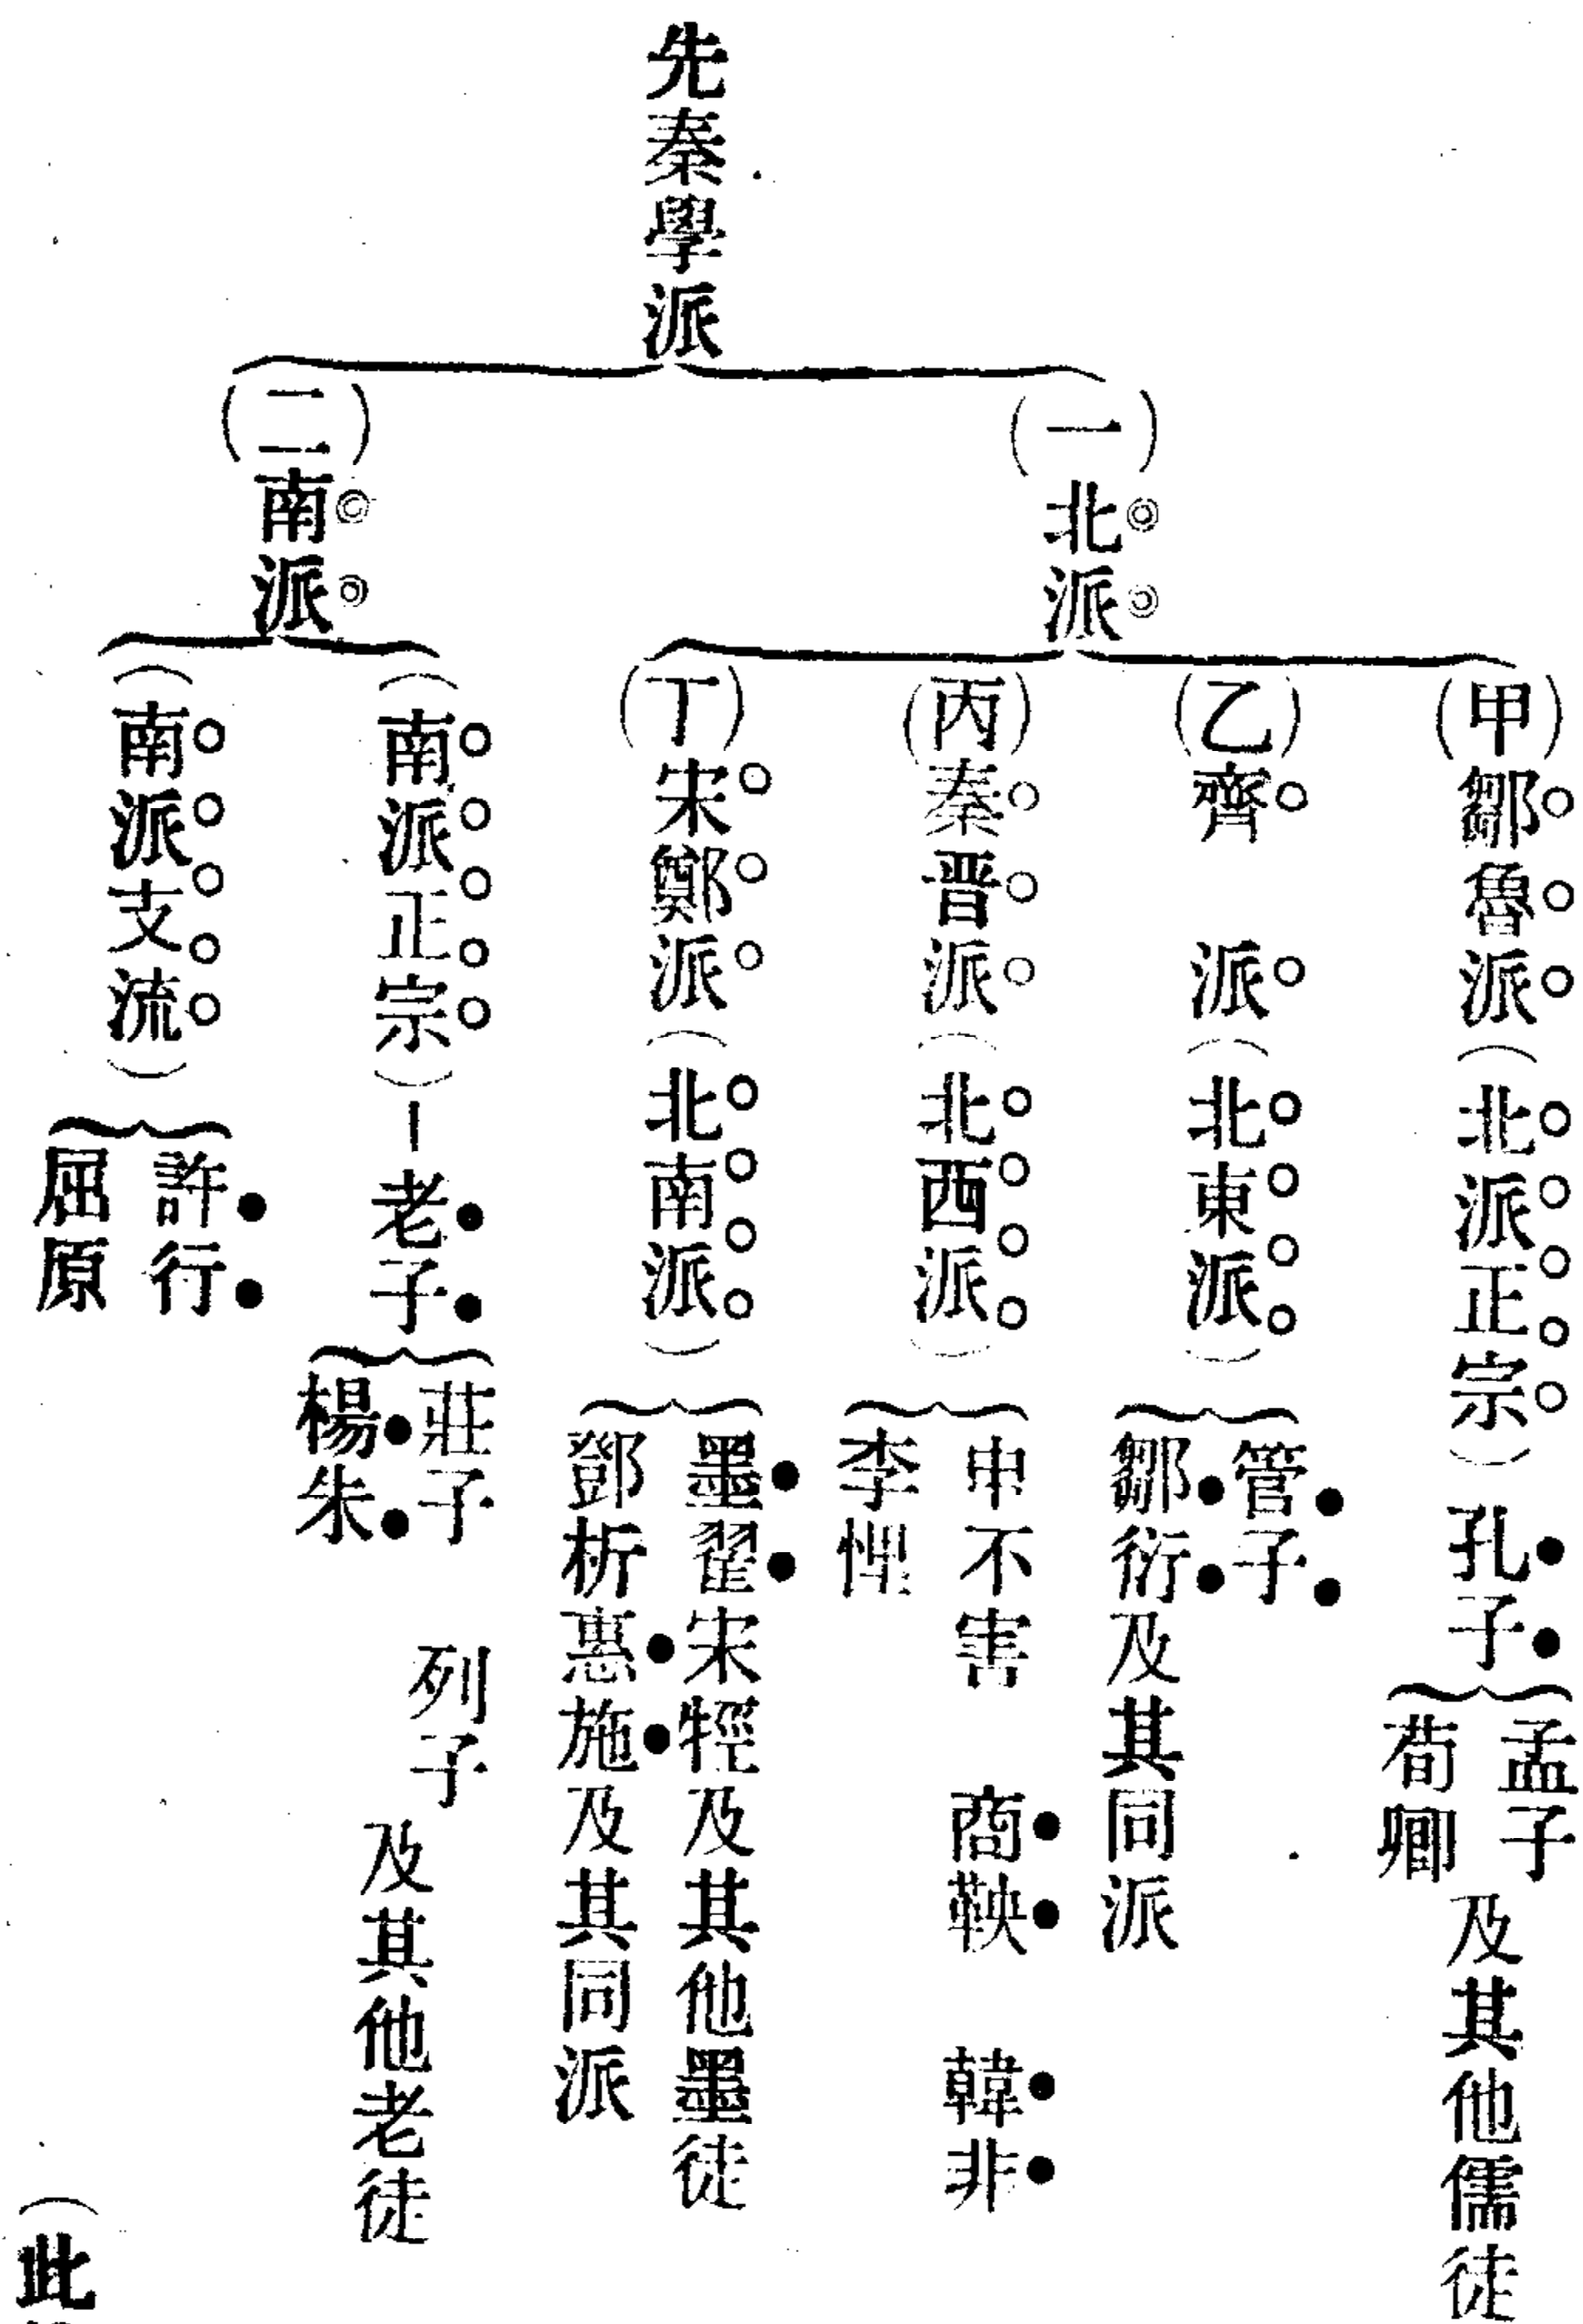 先秦學派
(一)北派
(甲)鄒魯派(北派正宗)孔子
孟子
荀卿
及其他儒徒
(乙)齊派(北東派)
管子
鄒衍及其同派
(丙)秦晋派(北西派)
申不害 商鞅 韓非
李悝
(丁)宋鄭派(北南派)
墨翟宋牼及其他墨徒
鄧析惠施及其同派
(二)南派
(南派正宗)—老子
莊子 列子
楊朱
及其他老徒
(南派支流)
許行
屈原
(此